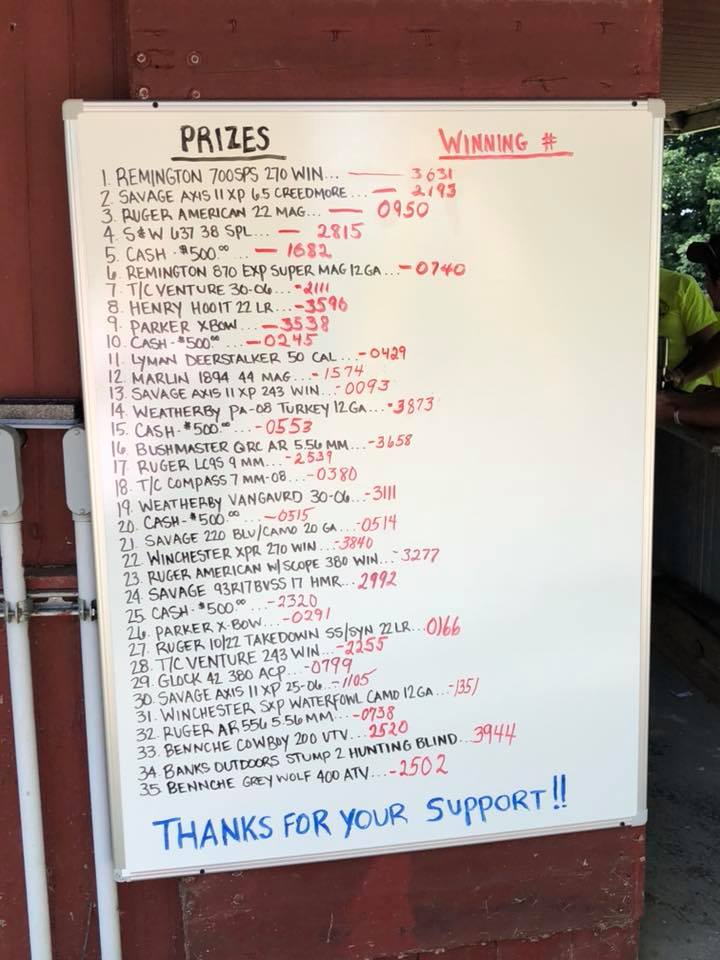 PRIZES WINNING #
1. REMINGTON 700SPS 270 WIN... — 3631
2. SAVAGE AXIS II XP 6.5 CREEDMORE... — 2193
3. RUGER AMERICAN 22 MAG... — 0950
4. S&W 637 38 SPL... — 2815
5. CASH - $500.00 ... — 1682
6. REMINGTON 870 EXP SUPER MAG 12 GA... - 0740
7. T/C VENTURE 30-06... - 2111
8. HENRY H001T 22 LR... - 3596
9. PARKER XBOW... — 3538
10. CASH - $500.00 ... — 0245
11. LYMAN DEERSTALKER 50 CAL... - 0429
12. MARLIN 1894 44 MAG... - 1574
13. SAVAGE AXIS II XP 243 WIN... - 0093
14. WEATHERBY PA-08 TURKEY 12 GA... - 3873
15. CASH - $500.00 ... - 0553
16. BUSHMASTER QRC AR 5.56 MM... - 3658
17. RUGER LC9S 9 MM... - 2539
18. T/C COMPASS 7 MM-08... - 0380
19. WEATHERBY VANGAURD 30-06... - 3111
20. CASH - $500.00 ... — 0515
21. SAVAGE 220 BLV/CAMO 20 GA... - 0514
22. WINCHESTER XPR 270 WIN... - 3840
23. RUGER AMERICAN W/SCOPE 380 WIN... - 3277
24. SAVAGE 93R17BVSS 17 HMR... 2992
25. CASH - $500.00 ... - 2320
26. PARKER X-BOW... - 0291
27. RUGER 10/22 TAKEDOWN SS/SYN 22 LR... 0166
28. T/C VENTURE 243 WIN... - 2255
29. GLOCK 42 380 ACP... - 0799
30. SAVAGE AXIS II XP 25-06... - 1105
31. WINCHESTER SXP WATERFOWL CAMO 12 GA... - 1351
32. RUGER AR556 5.56 MM... - 0738
33. BENNCHE COWBOY 200 UTV... 2520
34. BANKS OUTDOORS STUMP 2 HUNTING BLIND... 3944
35. BENNCHE GREY WOLF 400 ATV... - 2502
THANKS FOR YOUR SUPPORT!!